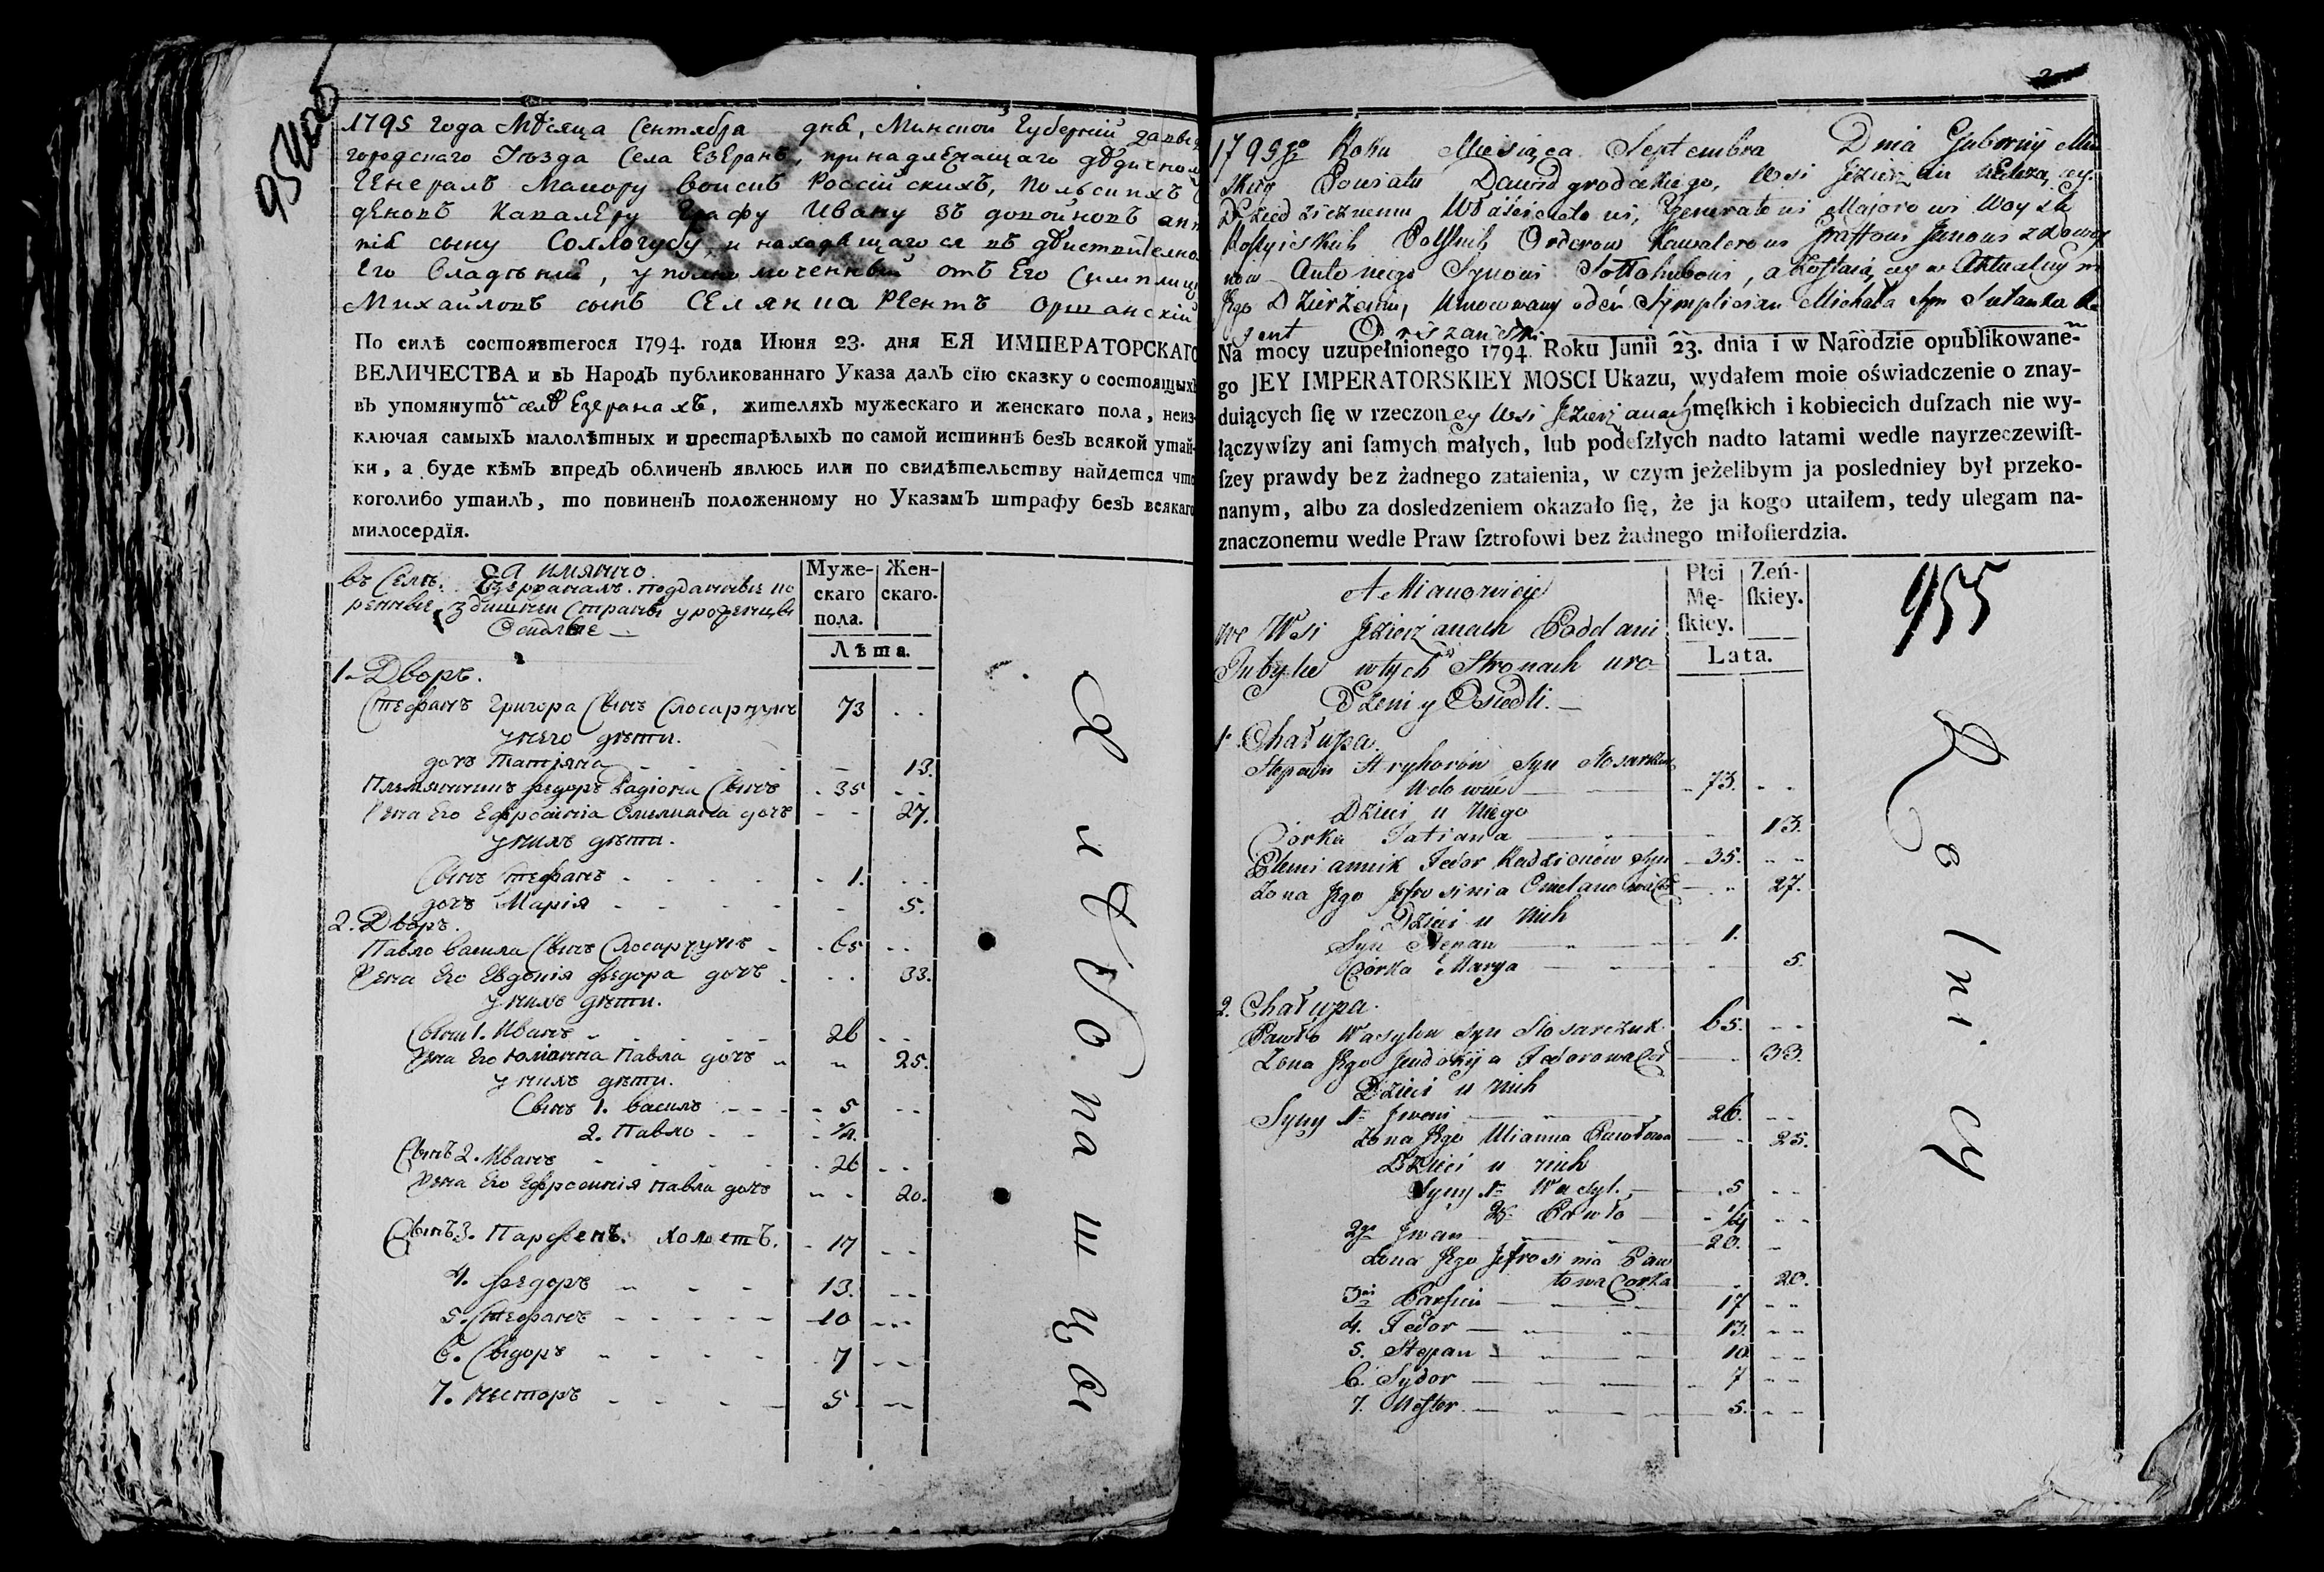 955
1795 года Мѣсяца Сентября днѣ, Минской Губерній давыд
городскаго Уѣзда Села Езеранъ, принадлежащаго дѣдисном
Генералъ Маиору воисиъ Россійскихъ, польсиихъ
деновъ Кавалеру Графу Ивану зъ допойновъ анп
ніѣ сыну Соллогубу, и находящагося въ дѣиствително
Его Владѣніи, уполномоченный отъ Его Симплиц
Михайловъ сынъ Селяниа Рѣентъ Оршанскій
По силѣ состоявшегося 1794. года Июня 23. дня ЕЯ ИМПЕРАТОРСКАГО
ВЕЛИЧЕСТВА и въ НародЪ публикованнаго Указа далЪ сїю сказку о состоящыхЪ
въ упомянутомъ селѣ Езеранахъ, жителяхЪ мужескаго и женскаго пола, неиз-
ключая самыхЪ малолѣтных и престарѣлыхЪ по самой истиннѣ безЪ всякой утай-
ки, а буде кѣмЪ впредЪ обличенЪ явлюсь или по свидѣтельству найдется что
коголибо утаилЪ, то повиненЪ положенному по УказамЪ штрафу безЪ всякаго
милосердїя.
А имянно
въ Селѣ Езеранахъ подданные ко
ренные здишнеи Страны уроженцы
Осидлые
Муже-
скаго
пола.
Жен-
скаго.
Лѣта.
1. Дворъ.
Стефанъ Григора Сынъ Слосарчукъ 73
у него дѣти.
дочь Татіяна 13.
Племянникъ Федоръ Радіона Сынъ 35
Жена Его Ефросиніа Омеляніа дочъ 27.
у нихъ дѣти.
Сынъ Стефанъ 1.
дочъ Марія 5.
2. Дворъ.
Павло Василіа Сынъ Слосарчукъ 65
Жена Его Евдокія Федора дочъ 33.
у нихъ дѣти.
Сыны 1. Иванъ 26
Жена Его Юліанна Павла дочъ 25.
у нихъ дѣти.
Сынъ 1. Василъ 5
2. Павло 1/4.
Сынъ 2. Иванъ 26
Жена Его Ефросинія Павла дочъ 20.
Сынъ 3. Парфенъ. холостъ. 17
4. Федоръ 13.
5. Стефанъ 10
6. Сыдоръ 7
7. Несторъ 5
Хлѣбопашцы
1795go Roku Miesiąca Septembra Dnia Gubernij Miń
skiey Powiatu Dawidgrodzkiego, Wsi Jezierzan należącey
Dziedzicznemu Właścicielowi, Generałowi Majorowi Woysk
Roſsyiskich Polſkich Orderow Kawalerowi Graffowi Janowi z Dowoy
now Antoniego Synowi Sołłohubowi, a zostaiącey w Aktualnym
Jego Dzierżeniu, Umocowany odeń Symplician Michała Syn Sielanka Re
jent Orszański
Na mocy uzupełnionego 1794 Roku Junii 23. dnia i w Narodzie opublikowane-
go JEY IMPERATORSKIEY MOSCI Ukazu, wydałem moie oświadczenie o znay-
duiących ſię w rzeczoney Wsi Jezierzanach męſkich i kobiecich duſzach nie wy-
łączywſzy ani ſamych małych, lub podeſzłych nadto latami wedle nayrzeczewiſt-
ſzey prawdy bez żadnego zataienia, w czym jeżelibym ja posledniey był przeko-
nanym, albo za dosledzeniem okazało ſię, że ja kogo utaiłem, tedy ulegam na-
znaczonemu wedle Praw ſztrofowi bez żadnego miłoſierdzia.
A Mianowicie
we Wsi Jezierzanach Poddani
Tutylce w tych Stronach uro-
dzeni y Osiedli.
Płci
Mę-
ſkiey.
Zeń-
ſkiey.
Lata.
955
1. Chałupa.
Stepan Hryhorow Syn Slosarczuk
Wdowiec 73.
Dzieci u Niego
Corka Tatiana 13.
Plemiannik Fedor Radzionow Syn 35.
Zona Jego Jefrosinia Omelanowa Cor 27.
Dzieci u Nich
Syn Stepan 1.
Corka Marya 5.
2. Chałupa.
Pawło Wasylow Syn Slosarczuk 65.
Zona Jego Jewdokija Fedorowa Cor 33.
Dzieci u Nich
Syny 1. Iwan 26.
Zona Jego Ulianna Pawłowa 25.
Dzieci u nich
Syny 1. Wasyl. 5
2. Pawło 1/4
2go Iwan 20.
Zona Jego Jefrosinia Paw
łowa Corka 20.
3ci Parfien 17
4. Fedor 13.
5. Stepan 10
6. Sydor 7
7. Neſtor 5.
Rolnicy